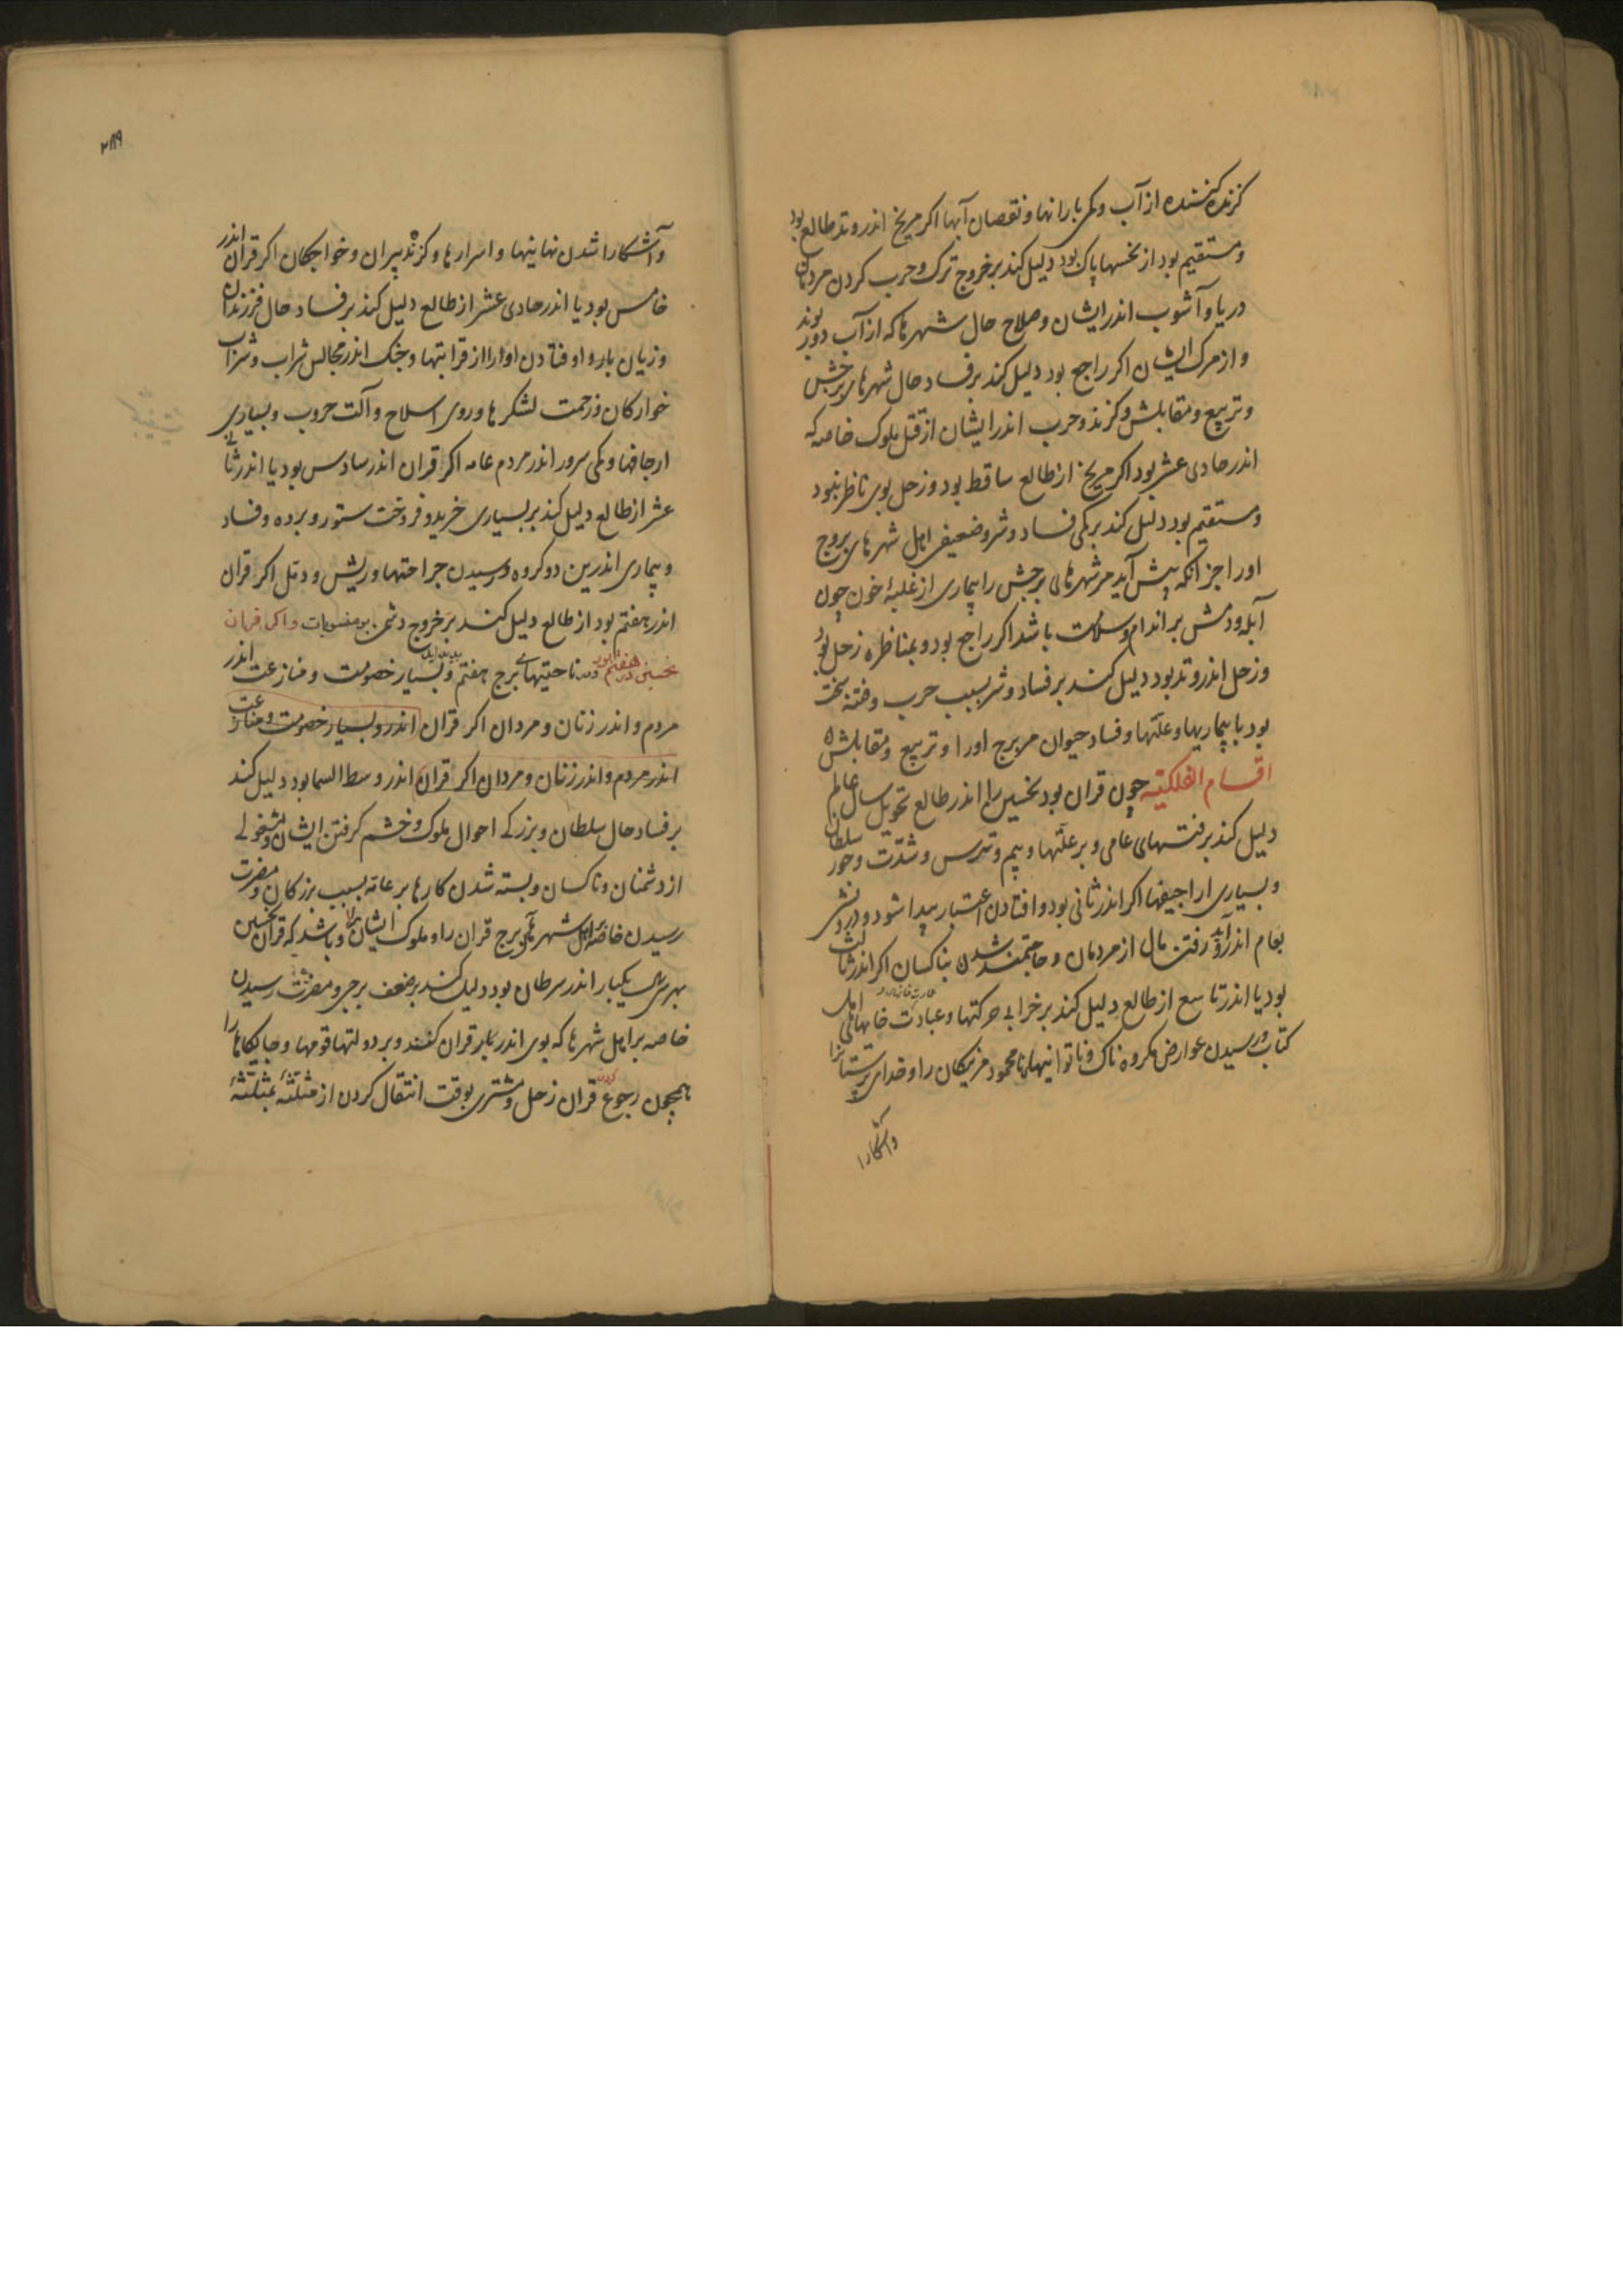 گزند کننده از آب و کمی بارانها و نقصان آبها اکر مریخ اندر وتد طالع بود
و مستقیم بود از نخسها پاک بود دلیل کند بر خروج ترک و حرب کردن مردمان
دریا و آشوب اندر ایشان و صلاح حال شهرها که از آب دور بوند
و از مرک ایشان اکر راجع بود دلیل کند بر فساد حال شهرهای برجش
و تربیع و مقابلش و کزند و حرب اندر ایشان از قبل ملوک خاصه که
اندر حادی عشر بود اکر مریخ از طالع ساقط بود و زحل بوی ناظر نبود
و مستقیم بود دلیل کند بر کمی فساد و شر و ضعیفی اهل شهرهای بروج
اورا جز انکه پیش آید مر شهرهای برجش را بیماری از غلبهٔ خون چون
آبله و دمش بر اندام و سلامت باشد اکر راجع بود و بمناظره زحل بود
و زحل اندر وتد بود دلیل کند بر فساد و شر بسبب حرب و فتنه سخت
بود با بیماریها و علّتها و فساد حیوان مر برج اورا و تربیع و مقابلش
اقسام الفلکیّه چون قران بود نخسین را اندر طالع تحویل سال عالم
دلیل کند بر فتنهای عامی و بر علّتها و بیم و ترس و شدّت و جور سلطان
و بسیاری اراجیفها اکر اندر ثانی بود وافتادن اعتبار پیدا شود و درویشی
بعام اندر آید و رفتن مال از مردمان و حاجتمند شدن بناکسان اکر اندر ثالث
بود یا اندر تاسع از طالع دلیل کند بر خرابی حرکتها و عبادت خانهای اهل
کتاب و رسیدن عوارض مکروه ناک و ناتوانیها نامحمود مر نیکان را و خدای پرستانرا
و آشکارا
۲۸۹
و آشکارا شدن نهانیها و اسرارها و کزند پیران و خواجکان اکر قران اندر
خامس بود یا اندر حادی عشر از طالع دلیل کند بر فساد حال فرزندان
و زیان بار و اوفتادن اوارا از قرابتها و جنک اندر مجالس شراب و شراب
خوارکان و زحمت لشکرها و روی اسلاح و آلت حروب و بسیاری
ارجافها و کمی سرور اندر مردم عامه اکر قران اندر سادس بود یا اندر ثانی
عشر از طالع دلیل کند بر بسیاری خرید و فروخت ستور و برده و فساد
و بیماری اندرین دو کروه و رسیدن جراحتها و ریش و دمل اکر قران
اندر هفتم بود از طالع دلیل کند بر خروج دشمن بر منسوبات و اکر قران
نخسین در هفتم بود ناحیتهای برج هفتم و بسیار خصومت و منازعت اندر
مردم و اندر زنان و مردان اکر قران اندر و بسیار خصومت و منازعت
اندر مردم و اندر زنان و مردان اکر قران اندر وسط السما بود دلیل کند
بر فساد حال سلطان و بزرکی احوال ملوک و خشم کرفتن ایشان و مشغولی
از دشمنان و ناکسان و بسته شدن کارها بر عامّه بسبب بزرکان و مضرت
رسیدن خاصّه اهل شهرهای برج قران را و ملوک ایشان را و باشد که قران نخسین
بهر سی یکبار اندر سرطان بود دلیل کند بر ضعف برجر و مضرّت رسیدن
خاصه بر اهل شهرها که بوی اندر تابر قران کنند و بر دولتها قومها و جایکاهها را
همچون رجوع کردن قران زحل و مشتری بوقت انتقال کردن از مثلّثهٔ بمثلّثهٔ